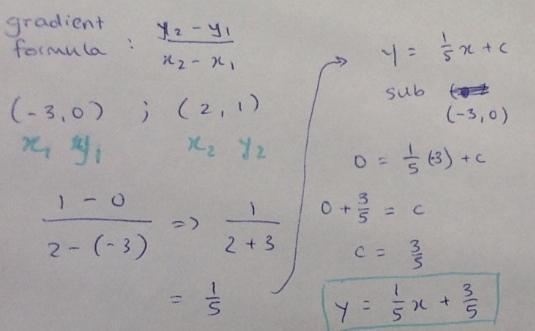 gradient formula : y₂ - y₁ / x₂ - x₁
(-3,0) ; (2,1)
x₁ y₁ x₂ y₂
1 - 0 / 2 - (-3) => 1 / 2 + 3
= 1/5
y = 1/5 x + c
sub
(-3,0)
0 = 1/5 (-3) + c
0 + 3/5 = c
c = 3/5
y = 1/5 x + 3/5